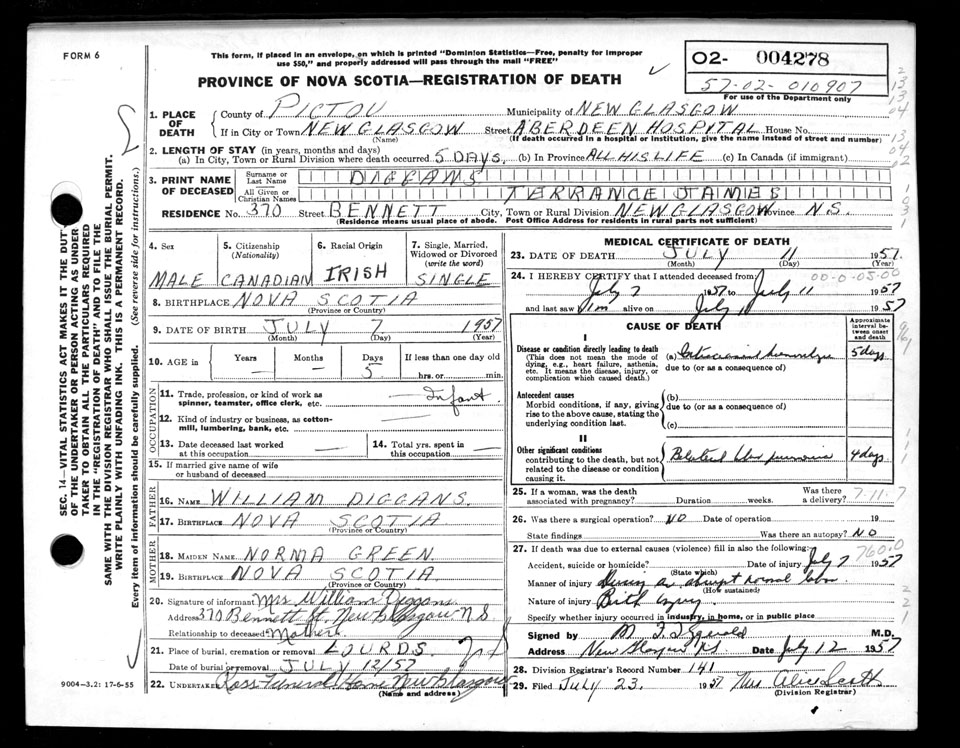 FORM 6
This form, if placed in an envelope, on which is printed "Dominion Statistics—Free, penalty for improper
use $50," and properly addressed will pass through the mail "FREE"
PROVINCE OF NOVA SCOTIA—REGISTRATION OF DEATH
O2- 004278
57-02-010907
For use of the Department only
SEC. 14—VITAL STATISTICS ACT MAKES IT THE DUTY
OF THE UNDERTAKER OR PERSON ACTING AS UNDER-
TAKER TO OBTAIN ALL THE PARTICULARS REQUIRED
IN THE "REGISTRATION OF DEATH" AND TO FILE THE
SAME WITH THE DIVISION REGISTRAR WHO SHALL ISSUE THE BURIAL PERMIT.
WRITE PLAINLY WITH UNFADING INK. THIS IS A PERMANENT RECORD.
Every item of information should be carefully supplied. (See reverse side for instructions.)
1. PLACE OF DEATH County of PICTOU Municipality of NEW GLASGOW
If in City or Town NEW GLASGOW Street ABERDEEN HOSPITAL House No.
(Name) (If death occurred in a hospital or institution, give the name instead of street and number)
2. LENGTH OF STAY (in years, months and days)
(a) In City, Town or Rural Division where death occurred 5 DAYS. (b) In Province ALL HIS LIFE (c) In Canada (if immigrant)
3. PRINT NAME OF DECEASED Surname or Last Name DIGGANS
All Given or Christian Names TERRANCE JAMES
RESIDENCE No. 370 Street BENNETT City, Town or Rural Division NEW GLASGOW Province N.S.
(Residence means usual place of abode. Post Office Address for residents in rural parts not sufficient)
4. Sex MALE
5. Citizenship (Nationality) CANADIAN
6. Racial Origin IRISH
7. Single, Married, Widowed or Divorced (write the word) SINGLE
8. BIRTHPLACE NOVA SCOTIA
(Province or Country)
9. DATE OF BIRTH JULY 7 1957
(Month) (Day) (Year)
10. AGE in Years — Months — Days 5 If less than one day old hrs. or min.
OCCUPATION
11. Trade, profession, or kind of work as spinner, teamster, office clerk, etc. — Infant.
12. Kind of industry or business, as cotton-mill, lumbering, bank, etc. —
13. Date deceased last worked at this occupation —
14. Total yrs. spent in this occupation —
15. If married give name of wife or husband of deceased
FATHER
16. Name WILLIAM DIGGANS.
17. Birthplace NOVA SCOTIA
(Province or Country)
MOTHER
18. MAIDEN NAME NORMA GREEN.
19. Birthplace NOVA SCOTIA
(Province or Country)
20. Signature of informant Mrs William Diggans
Address 370 Bennett St. New Glasgow N.S.
Relationship to deceased Mother.
21. Place of burial, cremation or removal LOURDS.
Date of burial or removal JULY 12/57
22. UNDERTAKER Ross Funeral Home New Glasgow
(Name and address)
9004—3.2: 17-6-55
MEDICAL CERTIFICATE OF DEATH
23. DATE OF DEATH JULY 11 1957
(Month) (Day) (Year)
24. I HEREBY CERTIFY that I attended deceased from
July 7 1957 to July 11 1957
and last saw him alive on July 11 1957
00-0-05-00
CAUSE OF DEATH
Approximate interval between onset and death
I
Disease or condition directly leading to death
(This does not mean the mode of dying, e.g., heart failure, asthenia, etc. It means the disease, injury, or complication which caused death.)
(a) Intracranial hemorrhage 5 days
due to (or as a consequence of)
Antecedent causes
Morbid conditions, if any, giving rise to the above cause, stating the underlying condition last.
(b)
due to (or as a consequence of)
(c)
II
Other significant conditions
contributing to the death, but not related to the disease or condition causing it.
Bilateral pneumonia 4 days
25. If a woman, was the death associated with pregnancy? Duration weeks. Was there a delivery?
7-11-7
26. Was there a surgical operation? NO Date of operation 19
State findings Was there an autopsy? NO
27. If death was due to external causes (violence) fill in also the following:
760.0
Accident, suicide or homicide? Date of injury July 7 1957
(State which)
Manner of injury During an abrupt normal labor
(How sustained)
Nature of injury Birth injury
Specify whether injury occurred in industry, in home, or in public place
Signed by M. Fitzgerald M.D.
Address New Glasgow NS Date July 12 1957
28. Division Registrar's Record Number 141
29. Filed July 23. 1957 Mrs Alice Scott
(Division Registrar)